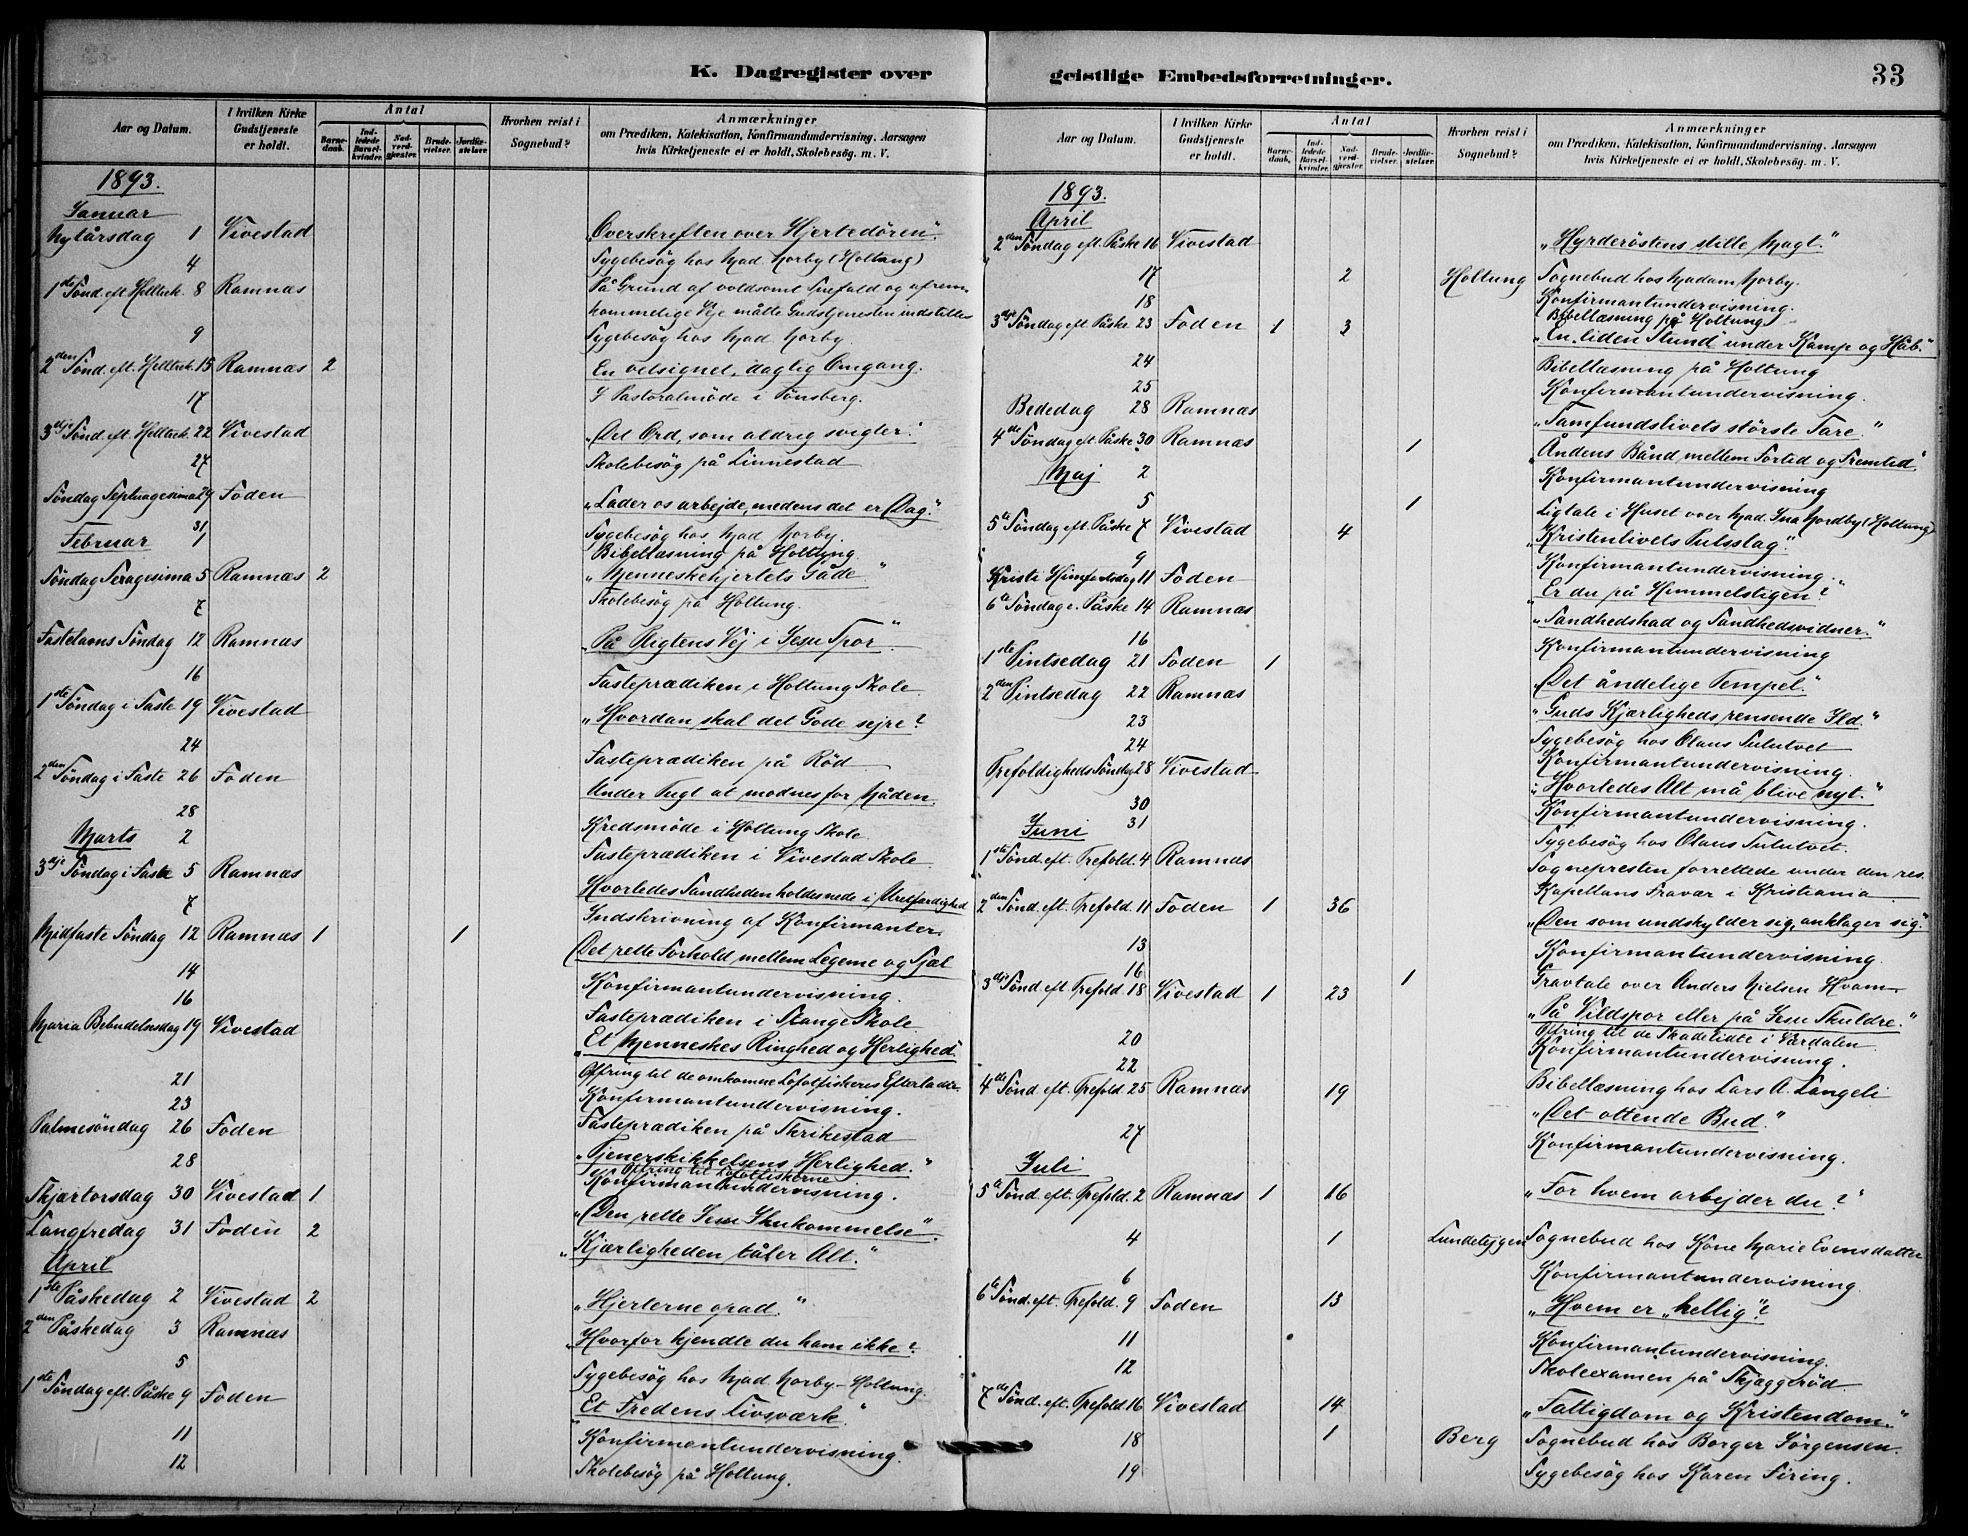 K. Dagregister over geistlige Embedsforretninger. 33
Aar og Datum. I hvilken Kirke Gudstjeneste er holdt. Antal Barnedaab. Indledede Barselkvinder. Nadverdgjester. Brudevielser. Jordfæstelser. Hvorhen reist i Sognebud? Anmærkninger om Prædiken, Katekisation, Konfirmandundervisning, Aarsagen hvis Kirketjeneste ei er holdt, Skolebesøg. m. V.
1893.
Januar
Nytårsdag 1 Vivestad „Overskriften over Hjertedören“.
4 Sygebesög hos Mad. Norby (Holtung)
1ste Sönd. eft. Helltrek. 8 Ramnæs På Grund af voldsomt Snefald og ufrem-
kommelige Veje måtte Gudstjenesten indstilles
9 Sygebesög hos Mad. Norby.
2den Sönd. eft. Helltrek. 15 Ramnæs 2 En velsignet, daglig Omgang.
17 I Pastoralmöde i Tönsberg.
3dje Sönd. eft. Helltrek. 22 Vivestad „Det Ord, som aldrig svigter.“
27 Skolebesög på Linnestad
Söndag Septuagesima 29 Foden „Lader os arbejde, medens det er Dag.“
31 Sygebesög hos Mad. Norby.
Februar 1 Bibellæsning på Holtung.
Söndag Sexagesima 5 Ramnæs 2 „Menneskehjertets Gåde“
7 Skolebesög på Holtung.
Fastelavns Söndag 12 Ramnæs „På Pligtens Vej i Jesu Spor“.
16 Fasteprædiken i Holtung Skole.
1ste Söndag i Faste 19 Vivestad „Hvordan skal det Gode sejre?
24 Fasteprædiken på Röd
2den Söndag i Faste 26 Foden Under Tugt at modnes for Nåden.
28 Kredsmöde i Holtung Skole.
Marts 2 Fasteprædiken i Vivestad Skole.
3dje Söndag i Faste 5 Ramnæs Hvorledes Sandheden holdes nede i Uretfærdighed
7 Indskrivning af Konfirmanter.
Midfaste Söndag 12 Ramnæs 1 1 Det rette Forhold mellem Legeme og Sjæl
14 Konfirmantundervisning.
16 Fasteprædiken i Stange Skole.
Maria Bebudelsesdag 19 Vivestad „Et Menneskes Ringhed og Herlighed“.
Ofring til de omkomne Lofotfiskeres Efterladte.
21 Konfirmantundervisning.
23 Fasteprædiken på Skrikestad
Palmesöndag 26 Foden „Tjenerskikkelsens Herlighed.“
Ofring til Lofotfiskerne
28 Konfirmantundervisning.
Skjærtorsdag 30 Vivestad 1 „Den rette Jesu Ihukommelse“.
Langfredag 31 Foden 2 „Kjærligheden tåler Alt.“
April
1ste Påskedag 2 Vivestad 2 „Hjerterne opad.“
2den Påskedag 3 Ramnæs „Hvorfor kjendte du ham ikke?
5 Sygebesög hos Mad Norby-Holtung.
1ste Söndag eft. Påske 9 Foden Et Fredens Livsværk.“
11 Konfirmantundervisning.
12 Skolebesög på Holtung.
Aar og Datum. I hvilken Kirke Gudstjeneste er holdt. Antal Barnedaab. Indledede Barselkvinder. Nadverdgjester. Brudevielser. Jordfæstelser. Hvorhen reist i Sognebud? Anmærkninger om Prædiken, Katekisation, Konfirmandundervisning, Aarsagen hvis Kirketjeneste ei er holdt, Skolebesøg. m. V.
1893.
April
2den Söndag eft. Påske 16 Vivestad „Hyrderöstens stille Magt.“
17 2 Holtung Sognebud hos Madam Norby.
18 Konfirmantundervisning.
Bibellæsning på Holtung
3dje Söndag eft. Påske 23 Foden 1 3 „En liden Stund under Kamp og Håb.“
24 Bibellæsning på Holtung
25 Konfirmantundervisning.
Bededag 28 Ramnæs „Samfundslivets störste Fare.“
4de Söndag eft. Påske 30 Ramnæs 1 „Åndens Bånd mellem Fortid og Fremtid“.
Maj 2 Konfirmantundervisning
5 1 Ligtale i Huset over Mad. Ina Nordby (Holtung)
5te Söndag eft. Påske 7 Vivestad 4 „Kristenlivets Pulsslag.“
9 Konfirmantundervisning.
Kristi Himfartsdag 11 Foden „Er du på Himmelstigen?“
6te Söndag e. Påske 14 Ramnæs „Sandhedshad og Sandhedsvidner.“
16 Konfirmantundervisning
1ste Pintsedag 21 Foden 1 „Det åndelige Tempel.“
2den Pintsedag 22 Ramnæs „Guds Kjærligheds rensende Ild.“
23 Sygebesög hos Olaus
24 Konfirmantundervisning.
Trefoldigheds Söndag 28 Vivestad „Hvorledes Alt må blive nyt.“
30 Konfirmantundervisning.
Juni 31 Sygebesög hos Olaus
1ste Sönd. eft. Trefold. 4 Ramnæs Sognepresten forrettede under den res.
Kapellans Fravær i Kristiania
2den Sönd. eft. Trefold. 11 Foden 1 36 „Den som undskylder sig, anklager sig.“
13 Konfirmantundervisning.
16 1 Gravtale over Anders Nielsen Hvam
3dje Sönd. eft Trefold. 18 Vivestad 1 23 „På Vildspor eller på Jesu Skuldre.“
Ofring til de Skadelidte i Værdalen.
20 Konfirmantundervisning.
22 Bibellæsning hos Lars A. Langeli
4de Sönd eft. Trefold. 25 Ramnæs 19 „Det ottende Bud.“
27 Konfirmantundervisning.
Juli
5te Sönd. eft. Trefold. 2 Ramnæs 1 16 „For hvem arbejder du?“
4 1 Lundebygen Sognebud hos Kone Marie Evensdatter
6 Konfirmantundervisning.
6te Sönd. eft. Trefold. 9 Foden 13 „Hvem er „hellig“?
11 Konfirmantundervisning.
12 Skoleexamen på Skjæggeröd.
7de Sönd. eft. Trefold. 16 Vivestad 14 „Fattigdom og Kristendom.“
18 1 Berg Sognebud hos Borger Jörgensen.
19 Sygebesög hos Karen Firing.